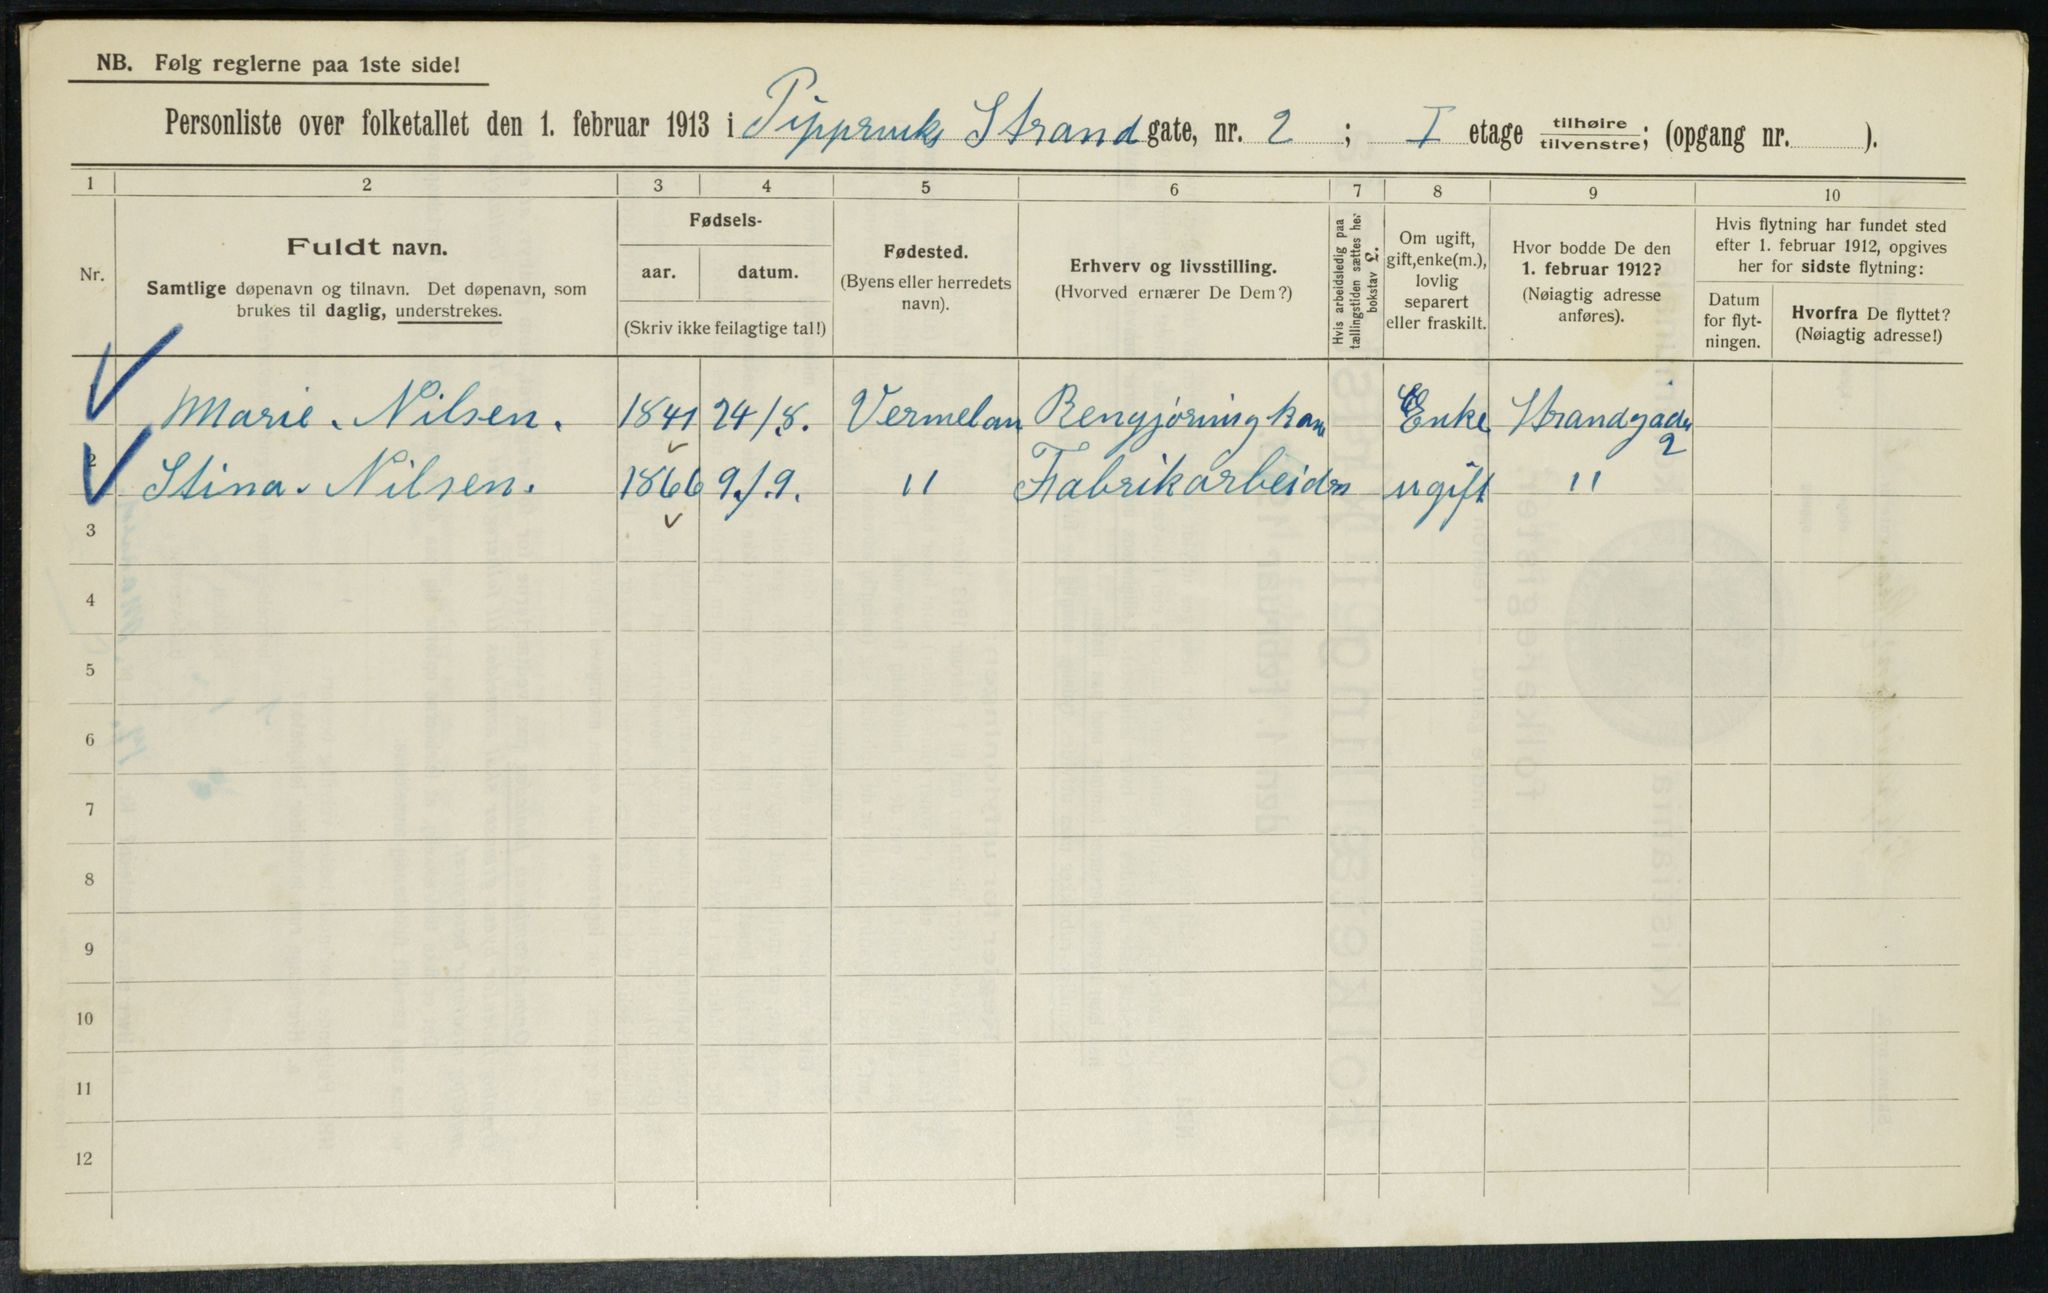 NB. Følg reglerne paa 1ste side!
Personliste over folketallet den 1. februar 1913 i Pippervik Strand gate, nr. 2 ; I etage tilhøire/tilvenstre; (opgang nr. ).
1 2 3 4 5 6 7 8 9 10
Nr.
Fuldt navn.
Samtlige døpenavn og tilnavn. Det døpenavn, som
brukes til daglig, understrekes.
Fødsels-
aar. datum.
(Skriv ikke feilagtige tal!)
Fødested.
(Byens eller herredets
navn).
Erhverv og livsstilling.
(Hvorved ernærer De Dem?)
Hvis arbeidsledig paa
tællingstiden sættes her
bokstav L.
Om ugift,
gift, enke(m.),
lovlig
separert
eller fraskilt.
Hvor bodde De den
1. februar 1912?
(Nøiagtig adresse
anføres).
Hvis flytning har fundet sted
efter 1. februar 1912, opgives
her for sidste flytning:
Datum
for flyt-
ningen.
Hvorfra De flyttet?
(Nøiagtig adresse!)
Marie. Nilsen. 1841 24/8. Vermelan Rengjøringkone Enke Strandgaden 2
2 Stina. Nilsen. 1866 9./.9. " Fabrikarbeider ugift "
3
4
5
6
7
8
9
10
11
12